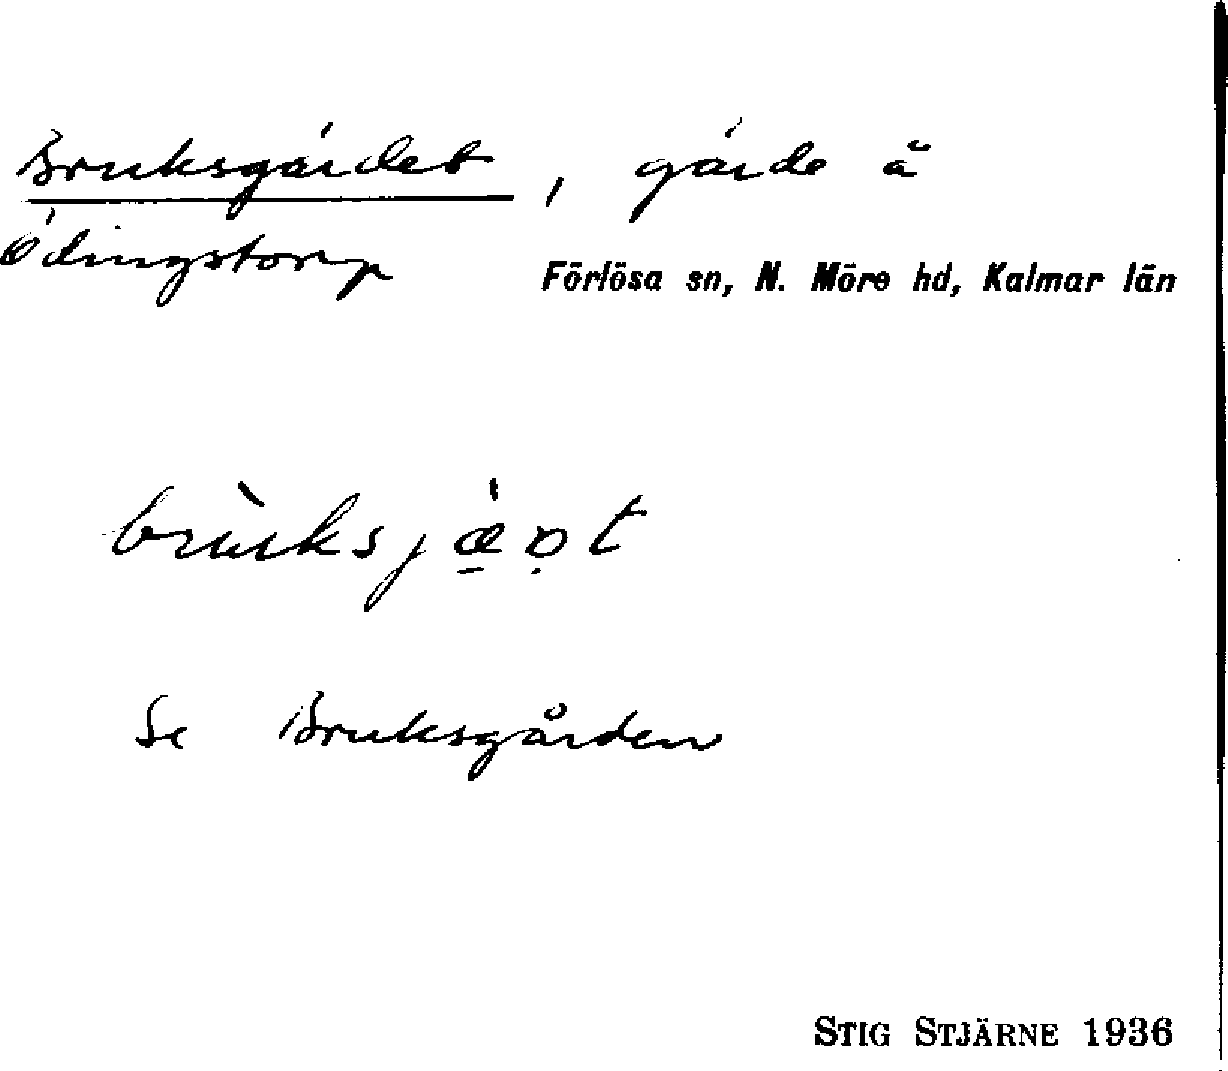 Bruksgärdet, gärde å
Ödingstorp
Förlösa sn, N. Möre hd, Kalmar län
Se Bruksgården
STIG STJÄRNE 1936